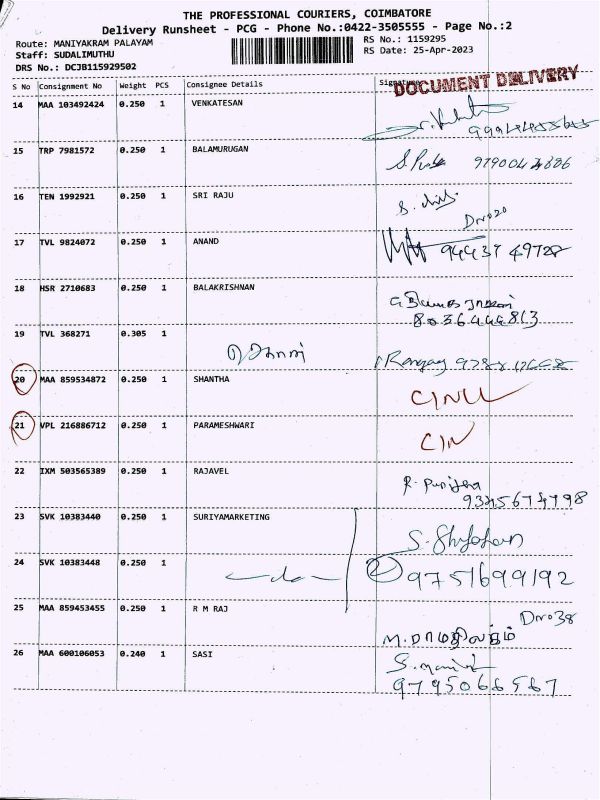 THE PROFESSIONAL COURIERS, COIMBATORE
Delivery Runsheet - PCG - Phone No.:0422-3505555 - Page No.:2
Route: MANIYAKRAM PALAYAM
RS No.: 1159295
Staff: SUDALIMUTHU
RS Date: 25-Apr-2023
DRS No.: DCJB115929502
S No Consignment No Weight PCS Consignee Details Signature
DOCUMENT DELIVERY
14 MAA 103492424 0.250 1 VENKATESAN
15 TRP 7981572 0.250 1 BALAMURUGAN
16 TEN 1992921 0.250 1 SRI RAJU
DNo20
17 TVL 9824072 0.250 1 ANAND 94437 49728
18 HSR 2710683 0.250 1 BALAKRISHNAN
19 TVL 368271 0.305 1
20 MAA 859534872 0.250 1 SHANTHA
21 VPL 216886712 0.250 1 PARAMESHWARI
22 IXM 503565389 0.250 1 RAJAVEL
9345674798
23 SVK 10383440 0.250 1 SURIYAMARKETING
24 SVK 10383448 0.250 1 -do- 2 9751699192
25 MAA 859453455 0.250 1 R M RAJ DNo38
26 MAA 600106053 0.240 1 SASI
9795066567